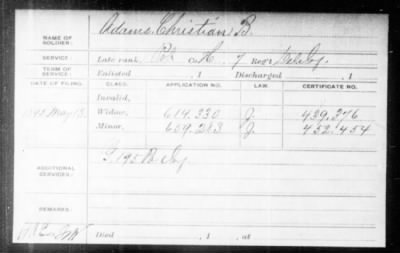 NAME OF SOLDIER: Adams, Christian B.
SERVICE: Late rank, Co. H, 7 Reg't
TERM OF SERVICE: Enlisted , 1 Discharged , 1
DATE OF FILING. CLASS. APPLICATION NO. LAW. CERTIFICATE NO.
Invalid,
May 13, Widow, 614.330 J. 439.376
Minor, 659.283 J. 452.454
ADDITIONAL SERVICES:
REMARKS:
Died , 1 , at